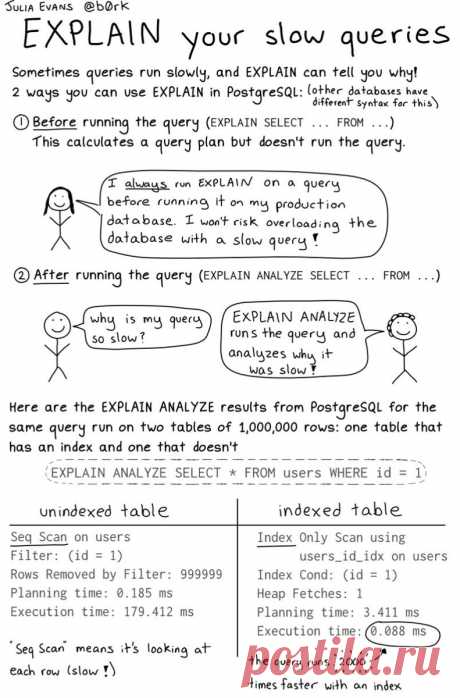 JULIA EVANS @b0rk
EXPLAIN your slow queries
Sometimes queries run slowly, and EXPLAIN can tell you why!
2 ways you can use EXPLAIN in PostgreSQL: (other databases have
different syntax for this)
① Before running the query (EXPLAIN SELECT ... FROM ...)
This calculates a query plan but doesn't run the query.
I always run EXPLAIN on a query
before running it on my production
database. I won't risk overloading the
database with a slow query!
② After running the query (EXPLAIN ANALYZE SELECT ... FROM ...)
why is my query
so slow?
EXPLAIN ANALYZE
runs the query and
analyzes why it
was slow!
Here are the EXPLAIN ANALYZE results from PostgreSQL for the
same query run on two tables of 1,000,000 rows: one table that
has an index and one that doesn't
EXPLAIN ANALYZE SELECT * FROM users WHERE id = 1
unindexed table
Seq Scan on users
Filter: (id = 1)
Rows Removed by Filter: 999999
Planning time: 0.185 ms
Execution time: 179.412 ms
"Seq Scan" means it's looking at
each row (slow!)
indexed table
Index Only Scan using
users_id_idx on users
Index Cond: (id = 1)
Heap Fetches: 1
Planning time: 3.411 ms
Execution time: 0.088 ms
the query runs 2000
times faster with an index
posti.ru